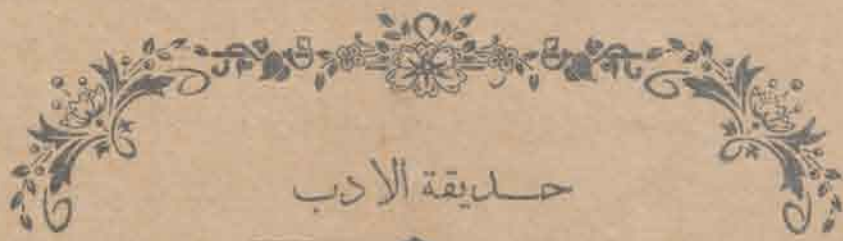 حديقة الادب